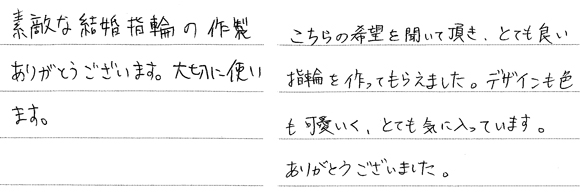 素敵な結婚指輪の作製
ありがとうございます。大切に使い
ます。
こちらの希望を聞いて頂き、とても良い
指輪を作ってもらえました。デザインも色
も可愛いく、とても気に入っています。
ありがとうございました。